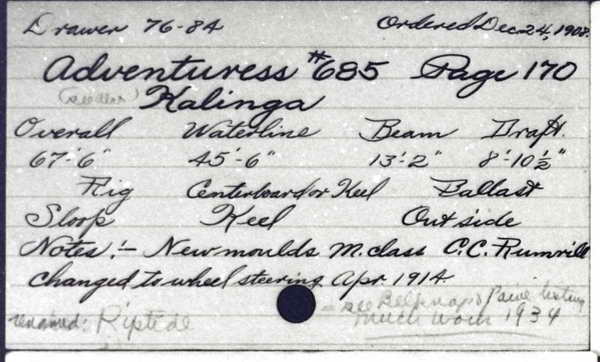 Drawer 76-84 Ordered Dec 24, 1908.
Adventuress #685 Page 170
(see also) Kalinga
Overall Waterline Beam Draft.
67'-6" 45'-6" 13'-2" 8'-10½"
Rig Centerboard or Keel Ballast
Sloop Keel Outside
Notes:- New moulds M. class C.C. Rumrill
changed to wheel steering Apr. 1914.
- see Belknap & Paine
renamed: Riptide much work 1934